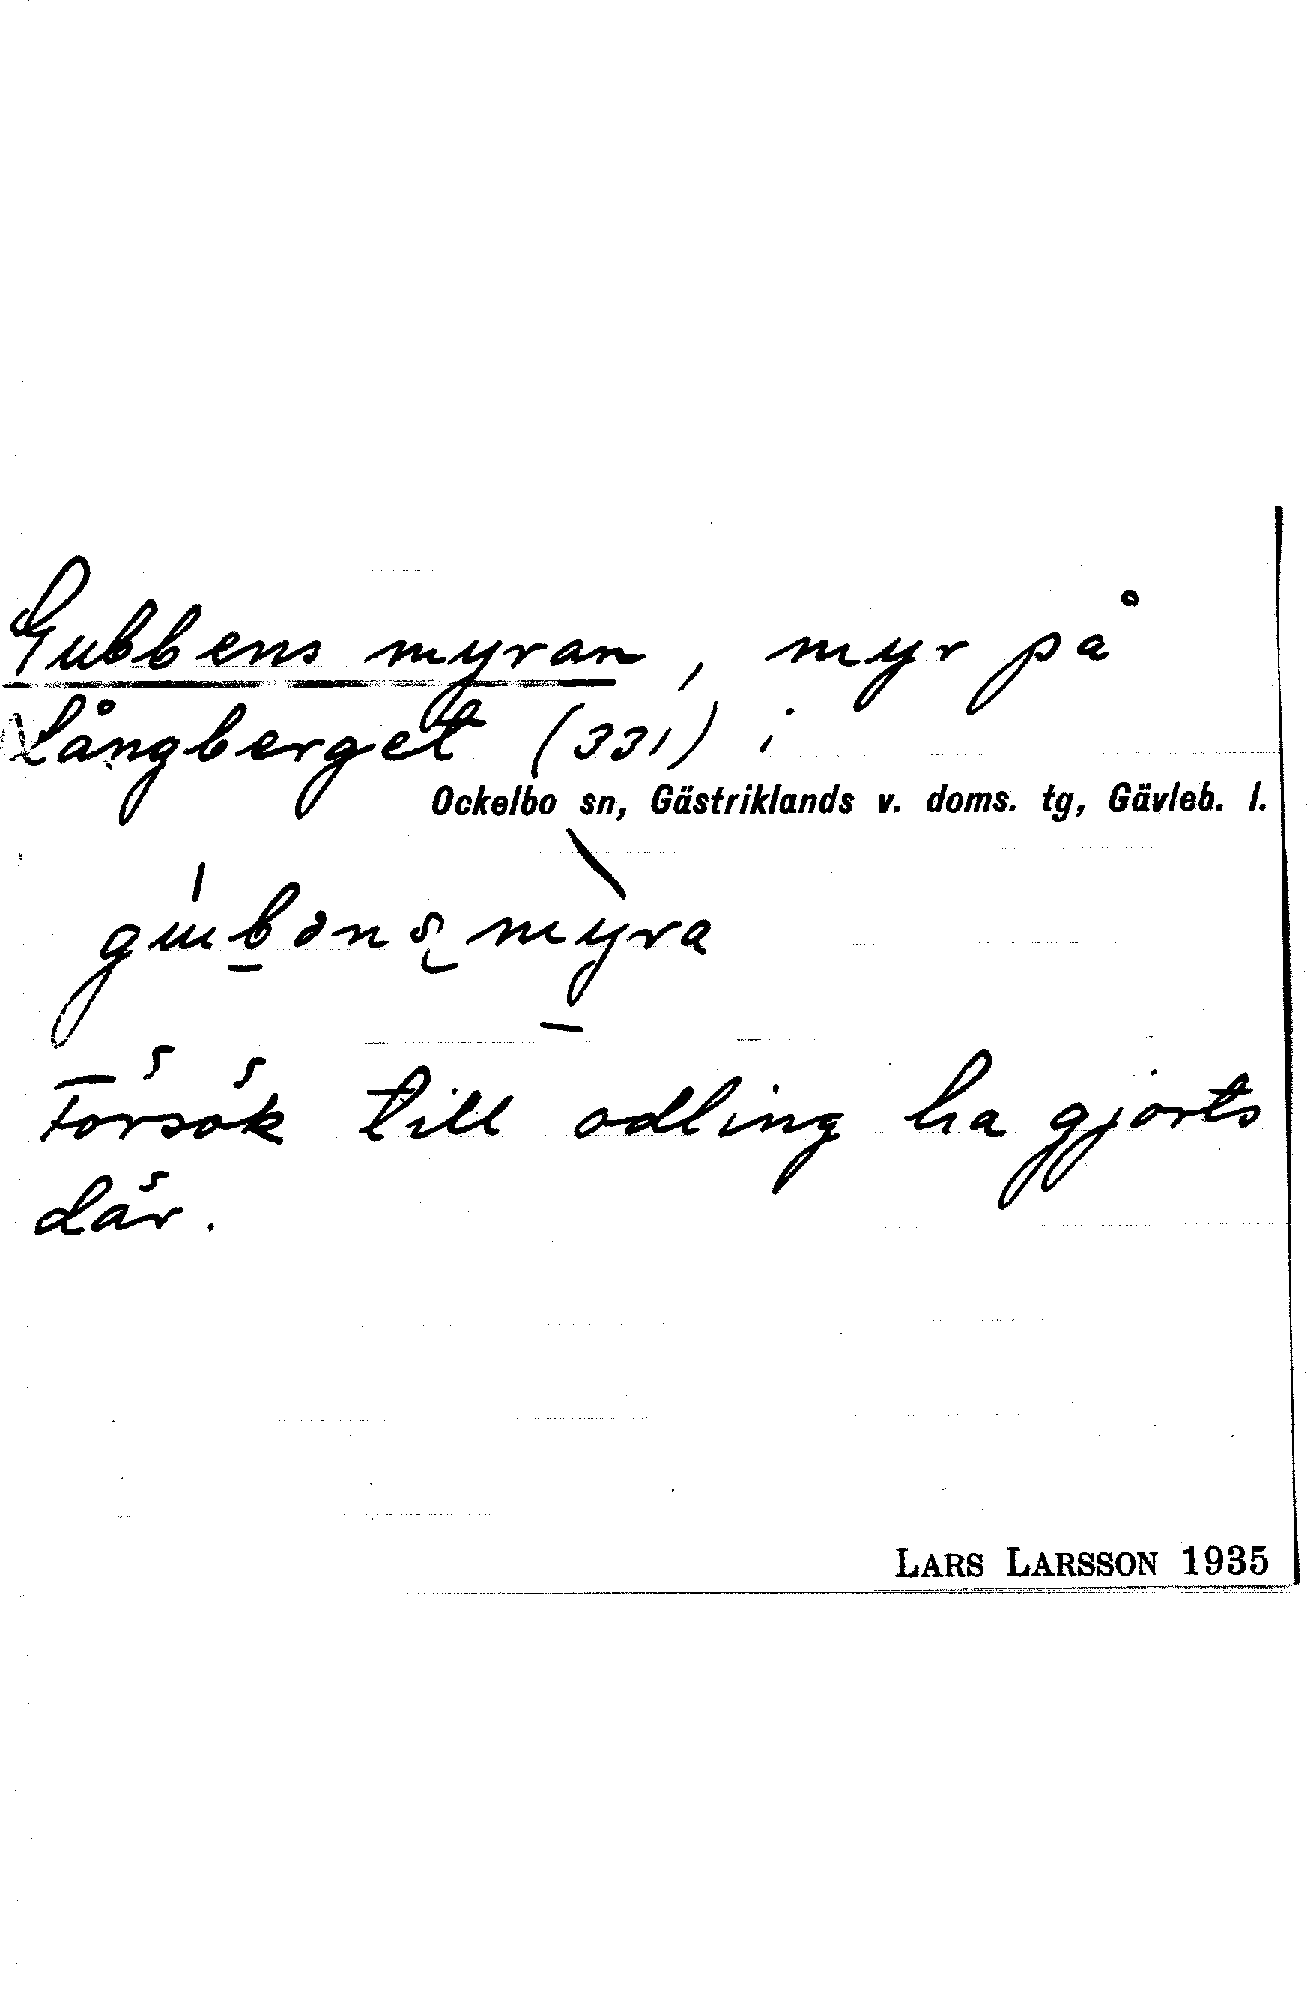 Gubbens myran, myr på
Långberget (331) i
Ockelbo sn, Gästriklands v. doms. tg, Gävleb. l.
Försök till odling ha gjorts
där.
LARS LARSSON 1935